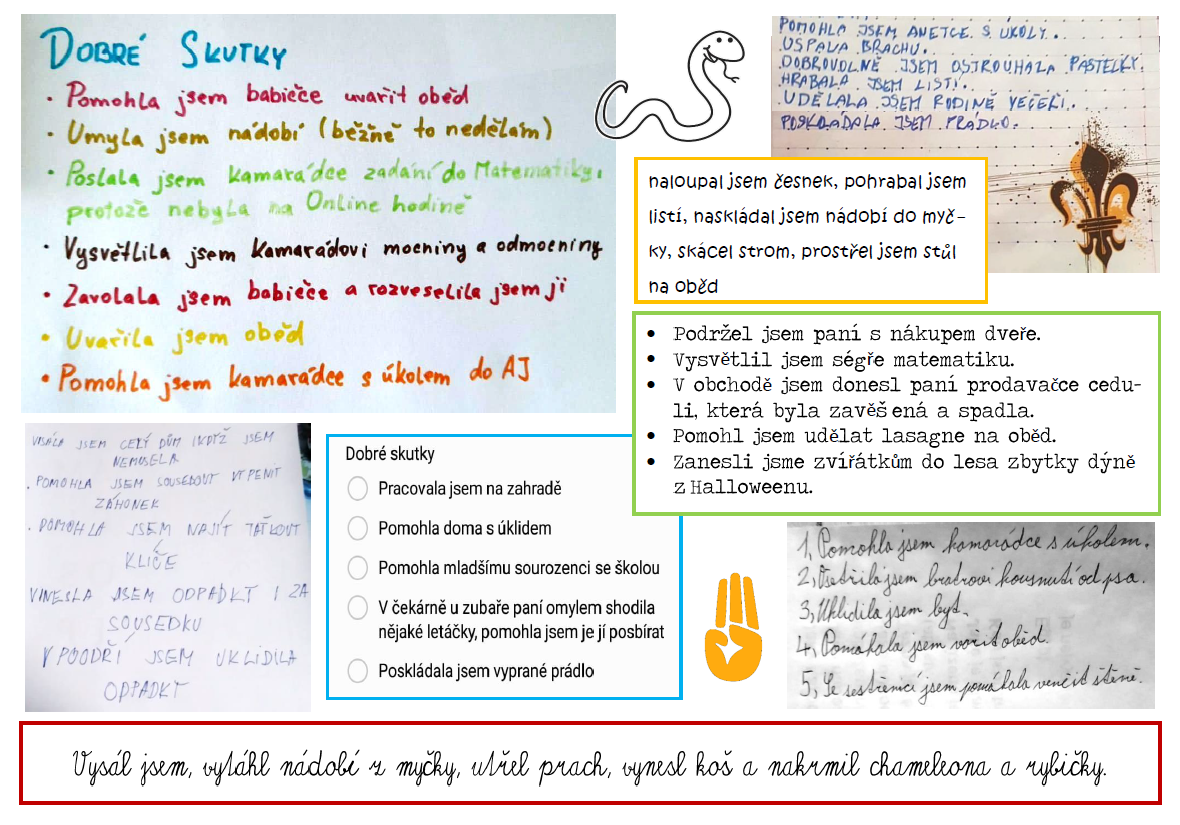 DOBRÉ SKUTKY
• Pomohla jsem babičce uvařit oběd
• Umyla jsem nádobí (běžně to nedělám)
• Poslala jsem kamarádce zadání do Matematiky,
protože nebyla na Online hodině
• Vysvětlila jsem kamarádovi mocniny a odmocniny
• Zavolala jsem babičce a rozveselila jsem ji
• Uvařila jsem oběd
• Pomohla jsem kamarádce s úkolem do AJ
POMOHLA JSEM ANETCE S ÚKOLY.
USPAVA BRACHU.
DOBROVOLNĚ JSEM OSTROUHALA PASTELKY.
HRABALA JSEM LISTÍ.
UDĚLALA JSEM RODINĚ VEČEŘI.
POSKLÁDALA JSEM PRÁDLO.
naloupal jsem česnek, pohrabal jsem
listí, naskládal jsem nádobí do myč-
ky, skácel strom, prostřel jsem stůl
na oběd
• Podržel jsem paní s nákupem dveře.
• Vysvětlil jsem ségře matematiku.
• V obchodě jsem donesl paní prodavačce cedu-
li, která byla zavěš ená a spadla.
• Pomohl jsem udělat lasagne na oběd.
• Zanesli jsme zvířátkům do lesa zbytky dýně
z Halloweenu.
VISÁLA JSEM CELÝ DŮM IKDYŽ JSEM
NEMUSELA
. POMOHLA JSEM SOUSEDOVY VYPENIT
ZÁHONEK
. POMOHLA JSEM NAJÍT TAŤKOVY
KLÍČE
VINESLA JSEM ODPADKY I ZA
SOUSEDKU
V POODŘÍ JSEM UKLIDILA
ODPADKY
Dobré skutky
Pracovala jsem na zahradě
Pomohla doma s úklidem
Pomohla mladšímu sourozenci se školou
V čekárně u zubaře paní omylem shodila
nějaké letáčky, pomohla jsem je jí posbírat
Poskládala jsem vyprané prádlo
1, Pomohla jsem kamarádce s úkolem.
2, Ošetřila jsem bratrovi kousnutí od psa.
3, Uklidila jsem byt.
4, Pomáhala jsem vařit oběd.
5, Se sestřenicí jsem pomáhala venčit štěně.
Vysál jsem, vytáhl nádobí z myčky, utřel prach, vynesl koš a nakrmil chameleona a rybičky.